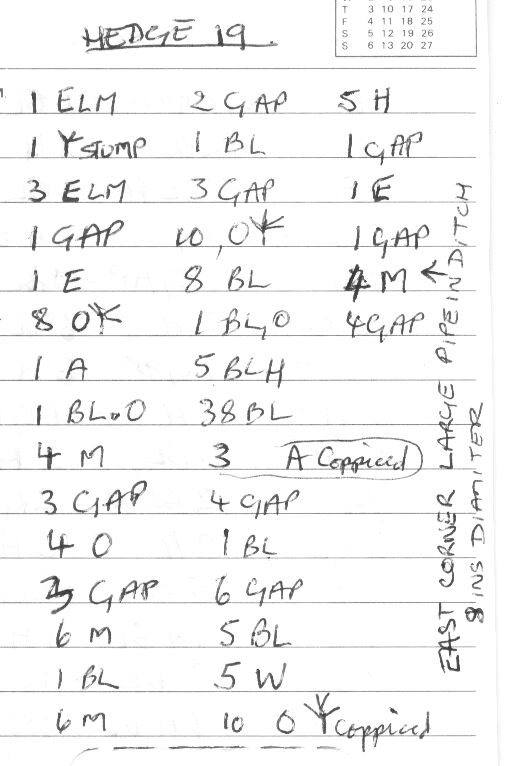 T 3 10 17 24
F 4 11 18 25
S 5 12 19 26
S 6 13 20 27
HEDGE 19.
1 ELM
1 STUMP
3 ELM
1 GAP
1 E
8 O
1 A
1 BL.O
4 M
3 GAP
4 O
3 GAP
6 M
1 BL
6 M
2 GAP
1 BL
3 GAP
10, O
8 BL
1 BL, O
5 BLH
38 BL
3 A Coppiced
4 GAP
1 BL
6 GAP
5 BL
5 W
10 O Coppiced
5 H
1 GAP
1 E
1 GAP
4 M ←
4 GAP
EAST CORNER LARGE PIPE IN DITCH
8 INS DIAMITER